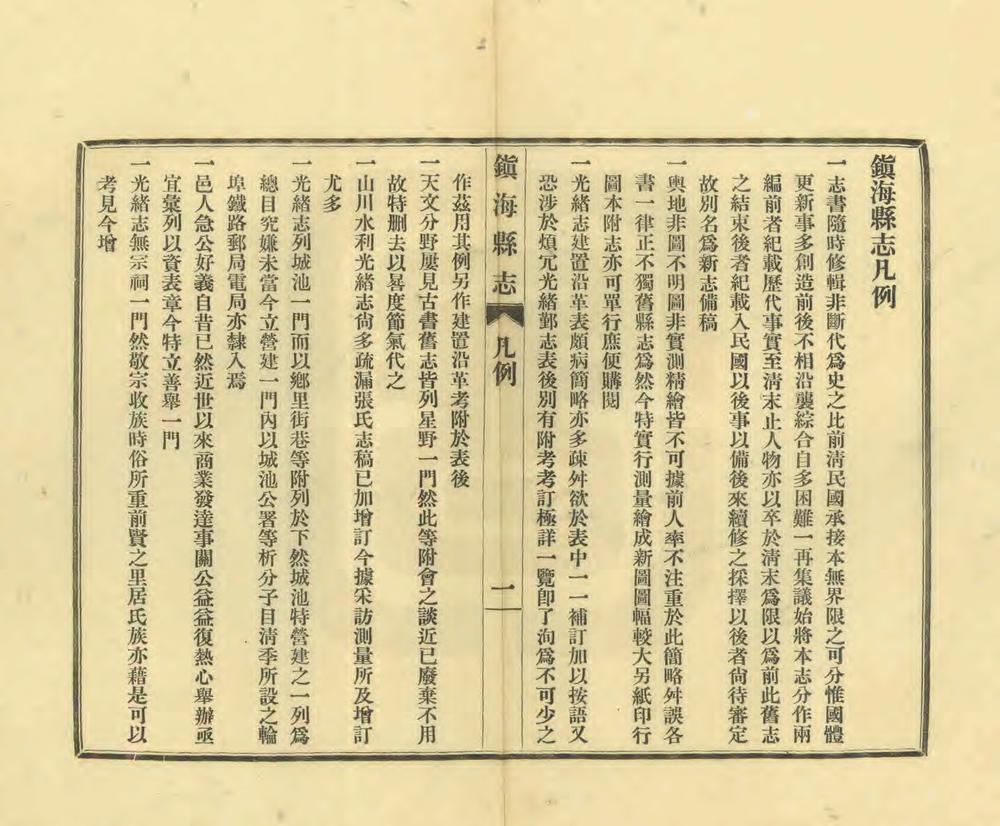 鎭海縣志凡例
一志書隨時修輯非斷代爲史之比前淸民國承接本無界限之可分惟國體
更新事多創造前後不相沿襲綜合自多困難一再集議始將本志分作兩
編前者紀載歷代事實至淸末止人物亦以卒於淸末爲限以爲前此舊志
之結束後者紀載入民國以後事以備後來續修之採擇以後者尙待審定
故別名爲新志備稿
一輿地非圖不明圖非實測精繪皆不可據前人率不注重於此簡略舛誤各
書一律正不獨舊縣志爲然今特實行測量繪成新圖圖幅較大另紙印行
圖本附志亦可單行庶便購閱
一光緒志建置沿革表頗病簡略亦多疎舛欲於表中一一補訂加以按語又
恐涉於煩冗光緒鄞志表後別有附考考訂極詳一覽卽了洵爲不可少之
鎭海縣志 凡例 二
作茲用其例另作建置沿革考附於表後
一天文分野屢見古書舊志皆列星野一門然此等附會之談近已廢棄不用
故特刪去以晷度節氣代之
一山川水利光緒志尙多疏漏張氏志稿已加增訂今據采訪測量所及增訂
尤多
一光緒志列城池一門而以鄕里街巷等附列於下然城池特營建之一列爲
總目究嫌未當今立營建一門內以城池公署等析分子目淸季所設之輪
埠鐵路郵局電局亦隸入焉
一邑人急公好義自昔已然近世以來商業發達事關公益益復熱心舉辦亟
宜彙列以資表章今特立善舉一門
一光緒志無宗祠一門然敬宗收族時俗所重前賢之里居氏族亦藉是可以
考見今增